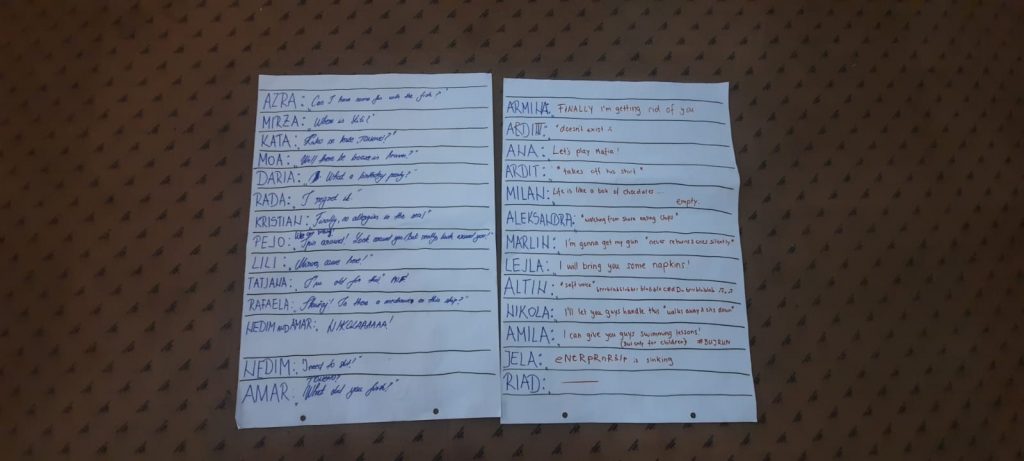 AZRA: "Can I have some fun with the fish?"
MIRZA: "Where is Lili?"
KATA: "
MOA: "Will there be bears in
DARIA: "What a birthday party?"
RADA: "I regret it."
KRISTIAN: "Finally, no allergies in the sea!"
PEJO: "Turn around! Look around you! But really look around you!"
LILI: "Mirza, come here!"
TATJANA: "I'm old for this"
RAFAELA: "Is there a on this ship?"
NEDIM and AMAR: NIKOLAAAAAA!
NEDIM: "I need to shit!"
AMAR: "What did you find?"
ARMINA: FINALLY I'm getting rid of you
ARDIT: *doesn't exist
ANA: Let's play Mafia!
ARDIT: *takes off his shirt*
MILAN: Life is like a box of chocolates ...
empty.
ALEKSANDRA: *watching from shore eating chips*
MARLIN: I'm gonna get my gun *never returns & cries silently*
LEJLA: I will bring you some napkins!
ALTIN: *soft voice*
NIKOLA: I'll let you guys handle this *walks away & sits down*
AMILA: I can give you guys swimming lessons!
(but only for children) #BUJRUN
JELA: is sinking
RIAD: